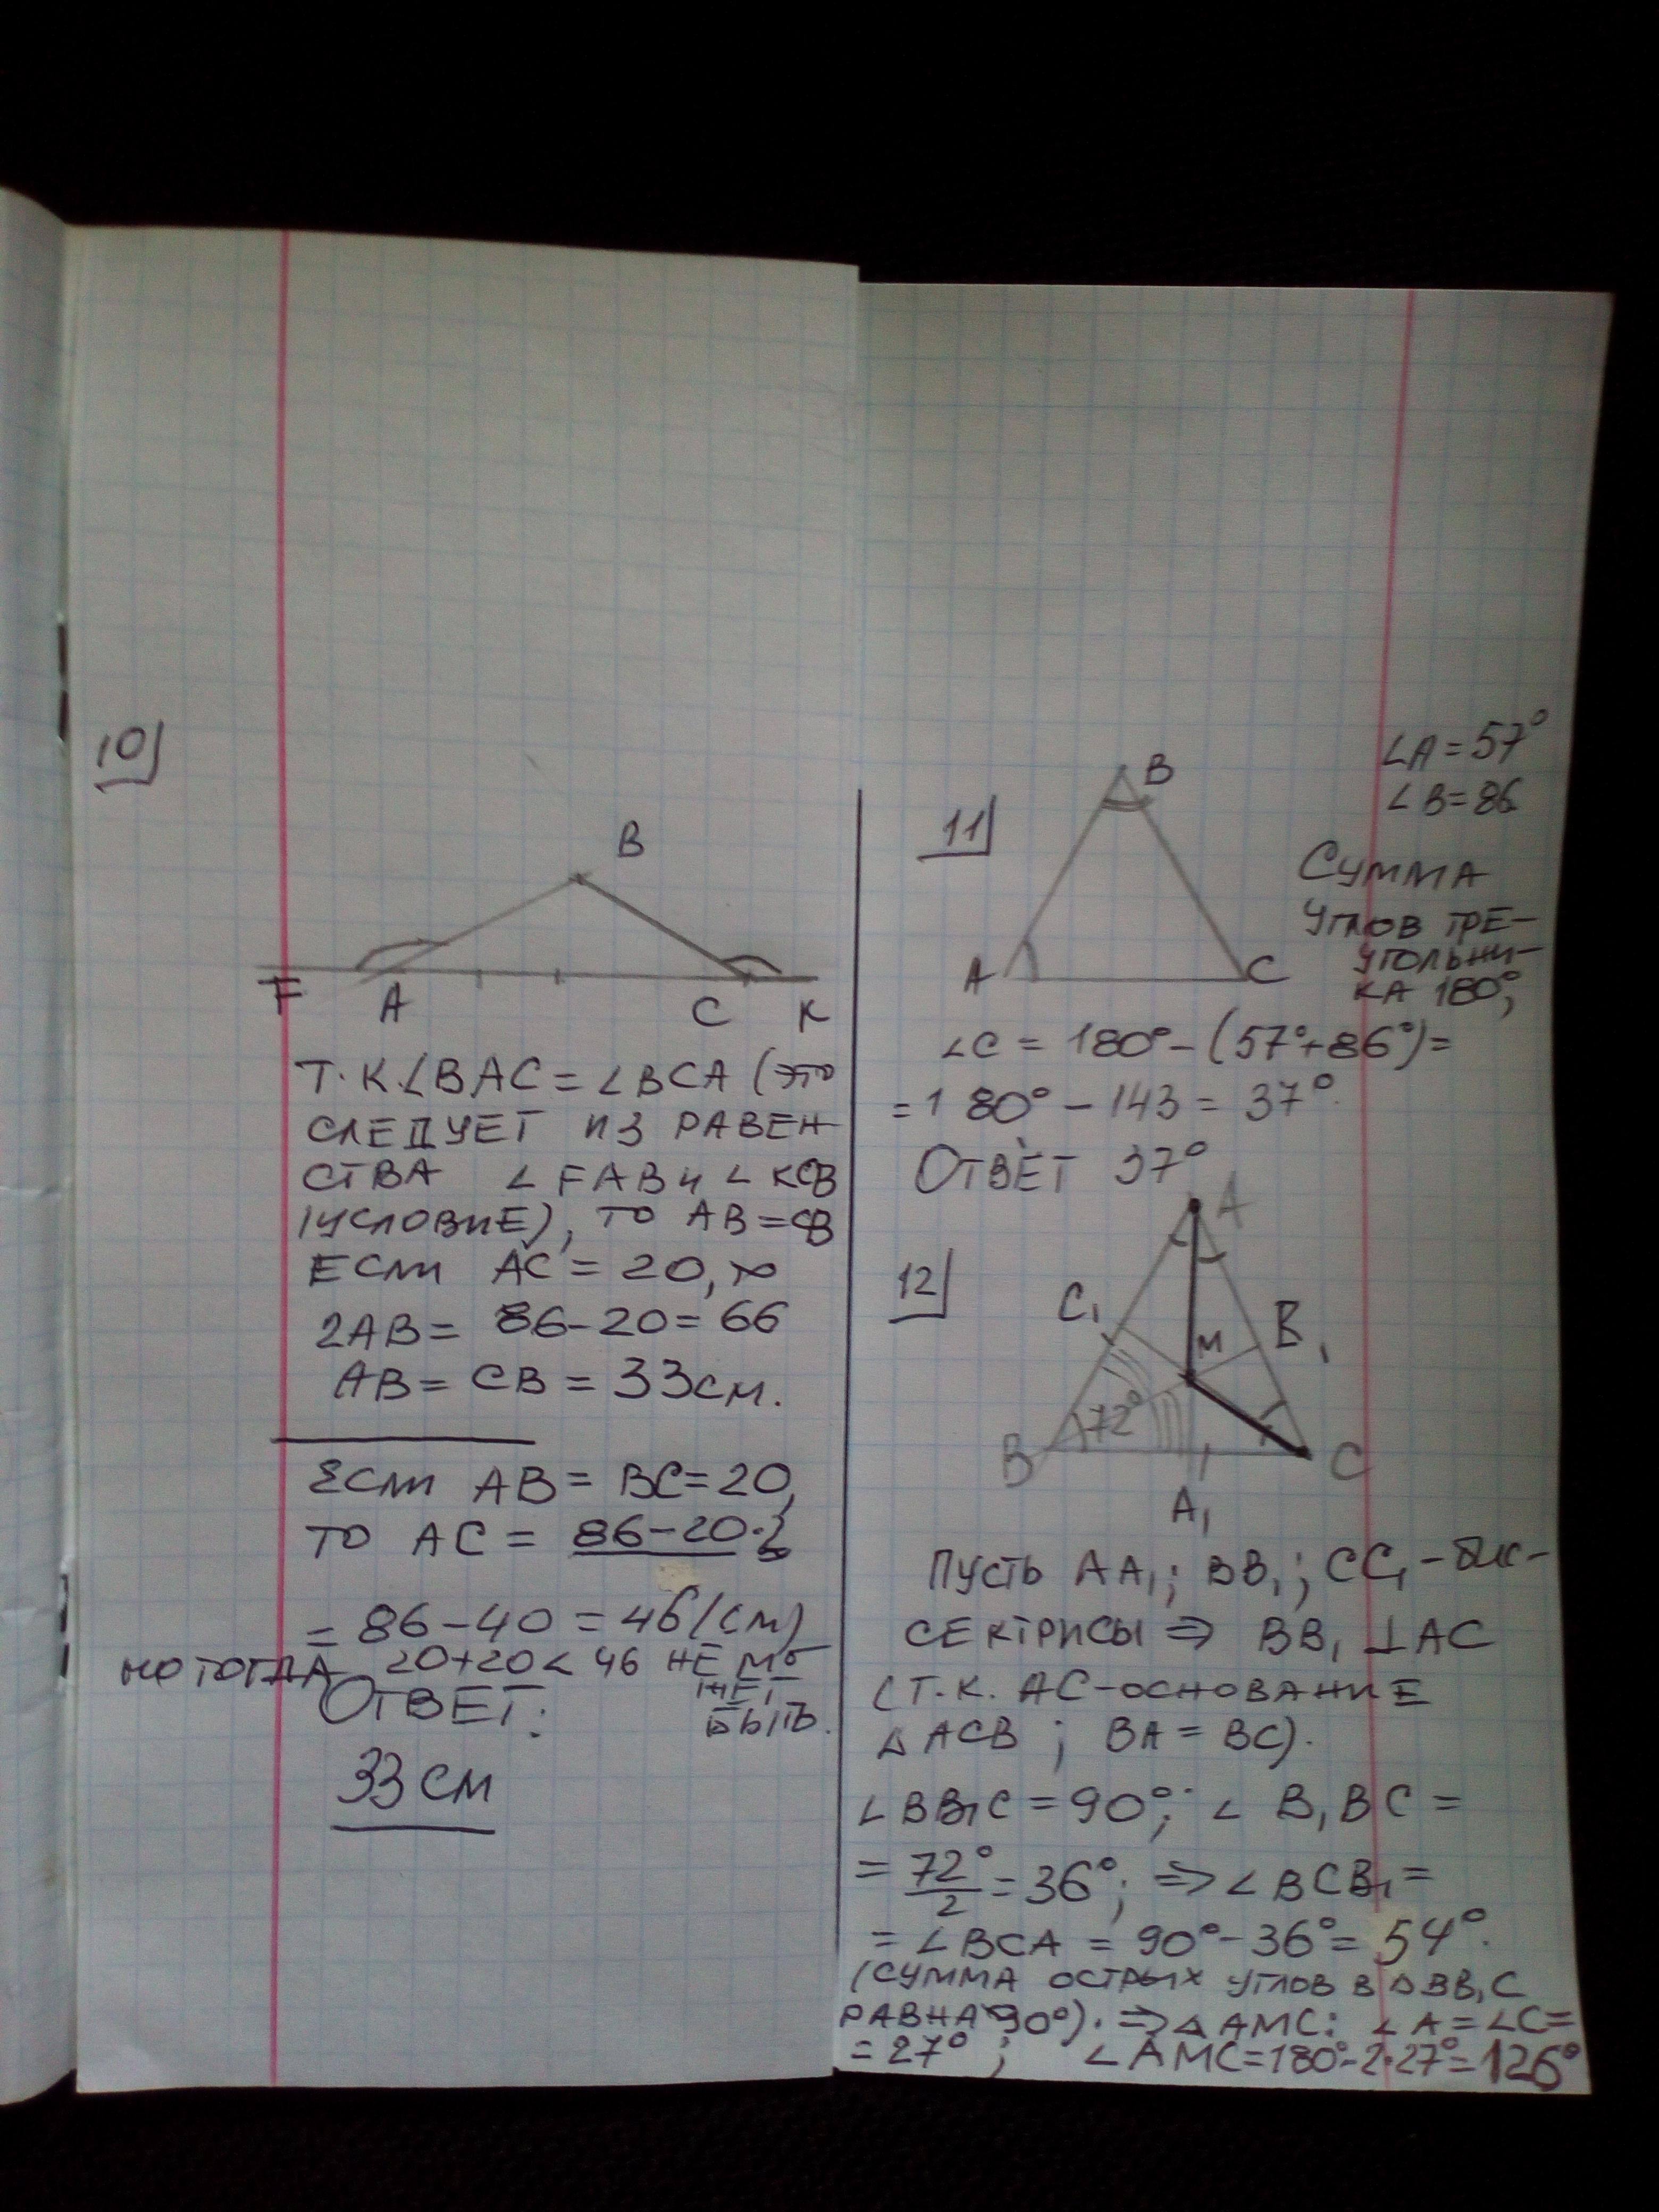 10
B
F A C K
Т.К. ∠BAC = ∠BCA (это
СЛЕДУЕТ ИЗ РАВЕН-
СТВА ∠FAB и ∠KCB
(УСЛОВИЕ), ТО AB = CB
ЕСЛИ AC = 20, то
2AB = 86-20 = 66
AB = CB = 33см.
ЕСЛИ AB = BC = 20,
ТО AC = 86-20·2
= 86-40 = 46(см)
НО ТОГДА 20+20 < 46 НЕ МО-
ЖЕТ
БЫТЬ.
ОТВЕТ:
33 см
11
B
A C
∠A = 57°
∠B = 86
СУММА
УГЛОВ ТРЕ-
УГОЛЬНИ-
КА 180°;
∠C = 180° - (57°+86°) =
= 180° - 143 = 37°.
ОТВЕТ 37°
12
A
C₁ M B₁
72°
B C
A₁
ПУСТЬ AA₁; BB₁; CC₁ - БИС-
СЕКТРИСЫ ⇒ BB₁ ⊥ AC
(Т.К. AC-ОСНОВАНИЕ
△ACB; BA = BC).
∠BB₁C = 90°; ∠B₁BC =
= 72°/2 = 36°; ⇒ ∠BCB₁ =
= ∠BCA = 90° - 36° = 54°.
(СУММА ОСТРЫХ УГЛОВ В △BB₁C
РАВНА 90°). ⇒ △AMC: ∠A = ∠C =
= 27°; ∠AMC = 180° - 2·27° = 126°